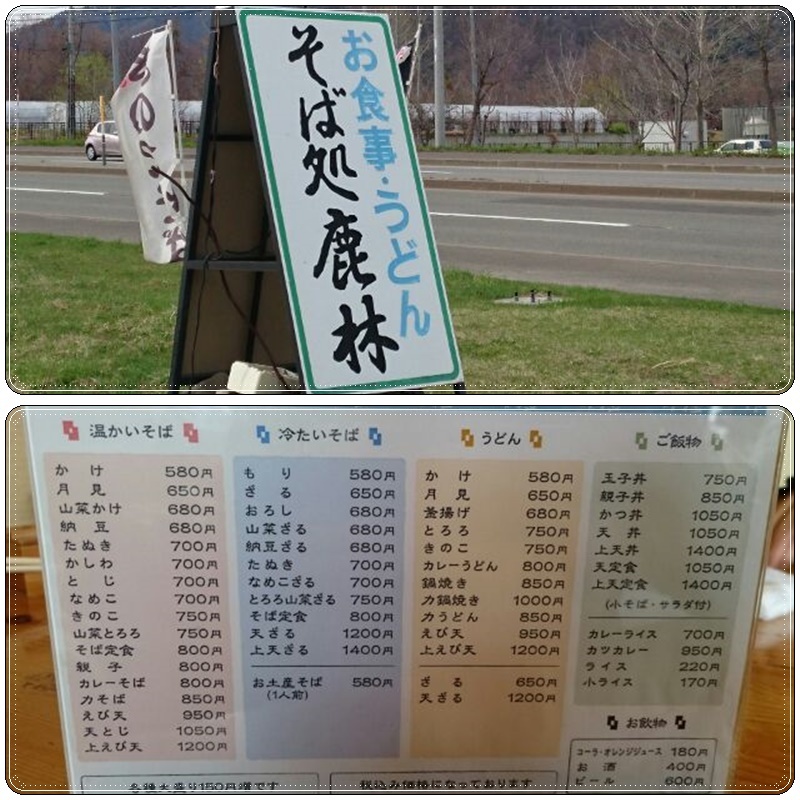 お食事・うどん
そば処 鹿林
温かいそば
かけ 580円
月見 650円
山菜かけ 680円
納豆 680円
たぬき 700円
かしわ 700円
とじ 700円
なめこ 700円
きのこ 750円
山菜とろろ 750円
そば定食 800円
親子 800円
カレーそば 800円
力そば 850円
えび天 950円
天とじ 1050円
上えび天 1200円
冷たいそば
もり 580円
ざる 650円
おろし 680円
山菜ざる 680円
納豆ざる 680円
たぬき 700円
なめこざる 700円
とろろ山菜ざる 750円
そば定食 800円
天ざる 1200円
上天ざる 1400円
お土産そば 580円
(1人前)
うどん
かけ 580円
月見 650円
釜揚げ 680円
とろろ 750円
きのこ 750円
カレーうどん 800円
鍋焼き 850円
力鍋焼き 1000円
力うどん 850円
えび天 950円
上えび天 1200円
ざる 650円
天ざる 1200円
ご飯物
玉子丼 750円
親子丼 850円
かつ丼 1050円
天丼 1050円
上天丼 1400円
天定食 1050円
上天定食 1400円
(小そば・サラダ付)
カレーライス 700円
カツカレー 950円
ライス 220円
小ライス 170円
お飲物
コーラ・オレンジジュース 180円
お酒 400円
ビール 600円
各種大盛り150円増です
税込み価格になっております